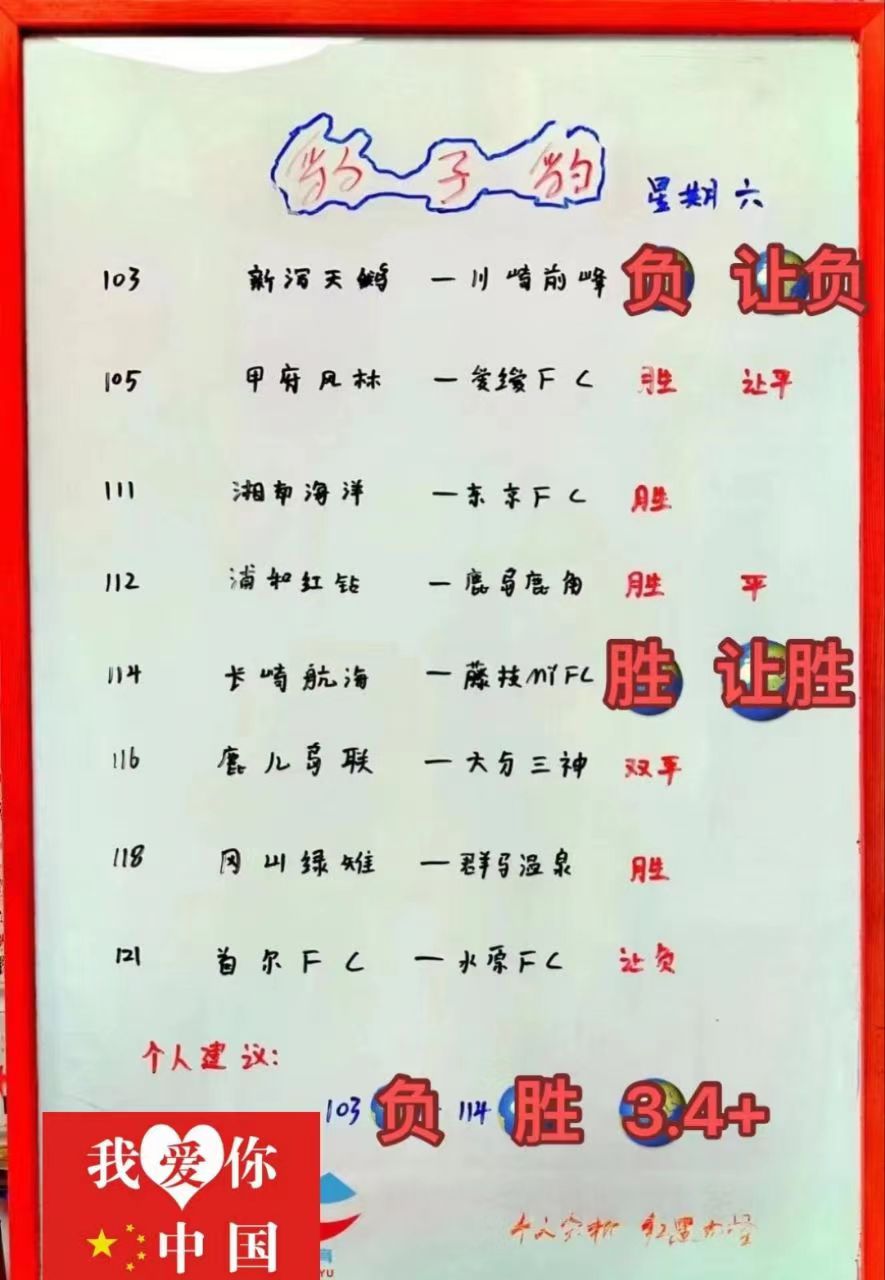 豹子豹
星期六
103 新潟天鹅 — 川崎前峰 负 让负
105 甲府风林 — 爱媛FC 胜 让平
111 湘南海洋 — 东京FC 胜
112 浦和红钻 — 鹿岛鹿角 胜 平
114 长崎航海 — 藤枝MYFC 胜 让胜
116 鹿儿岛联 — 大分三神 双平
118 冈山绿雉 — 群马温泉 胜
121 首尔FC — 水原FC 让负
个人建议:
103 负 114 胜 3.4+
我爱你
中国
育
YU
个人分析